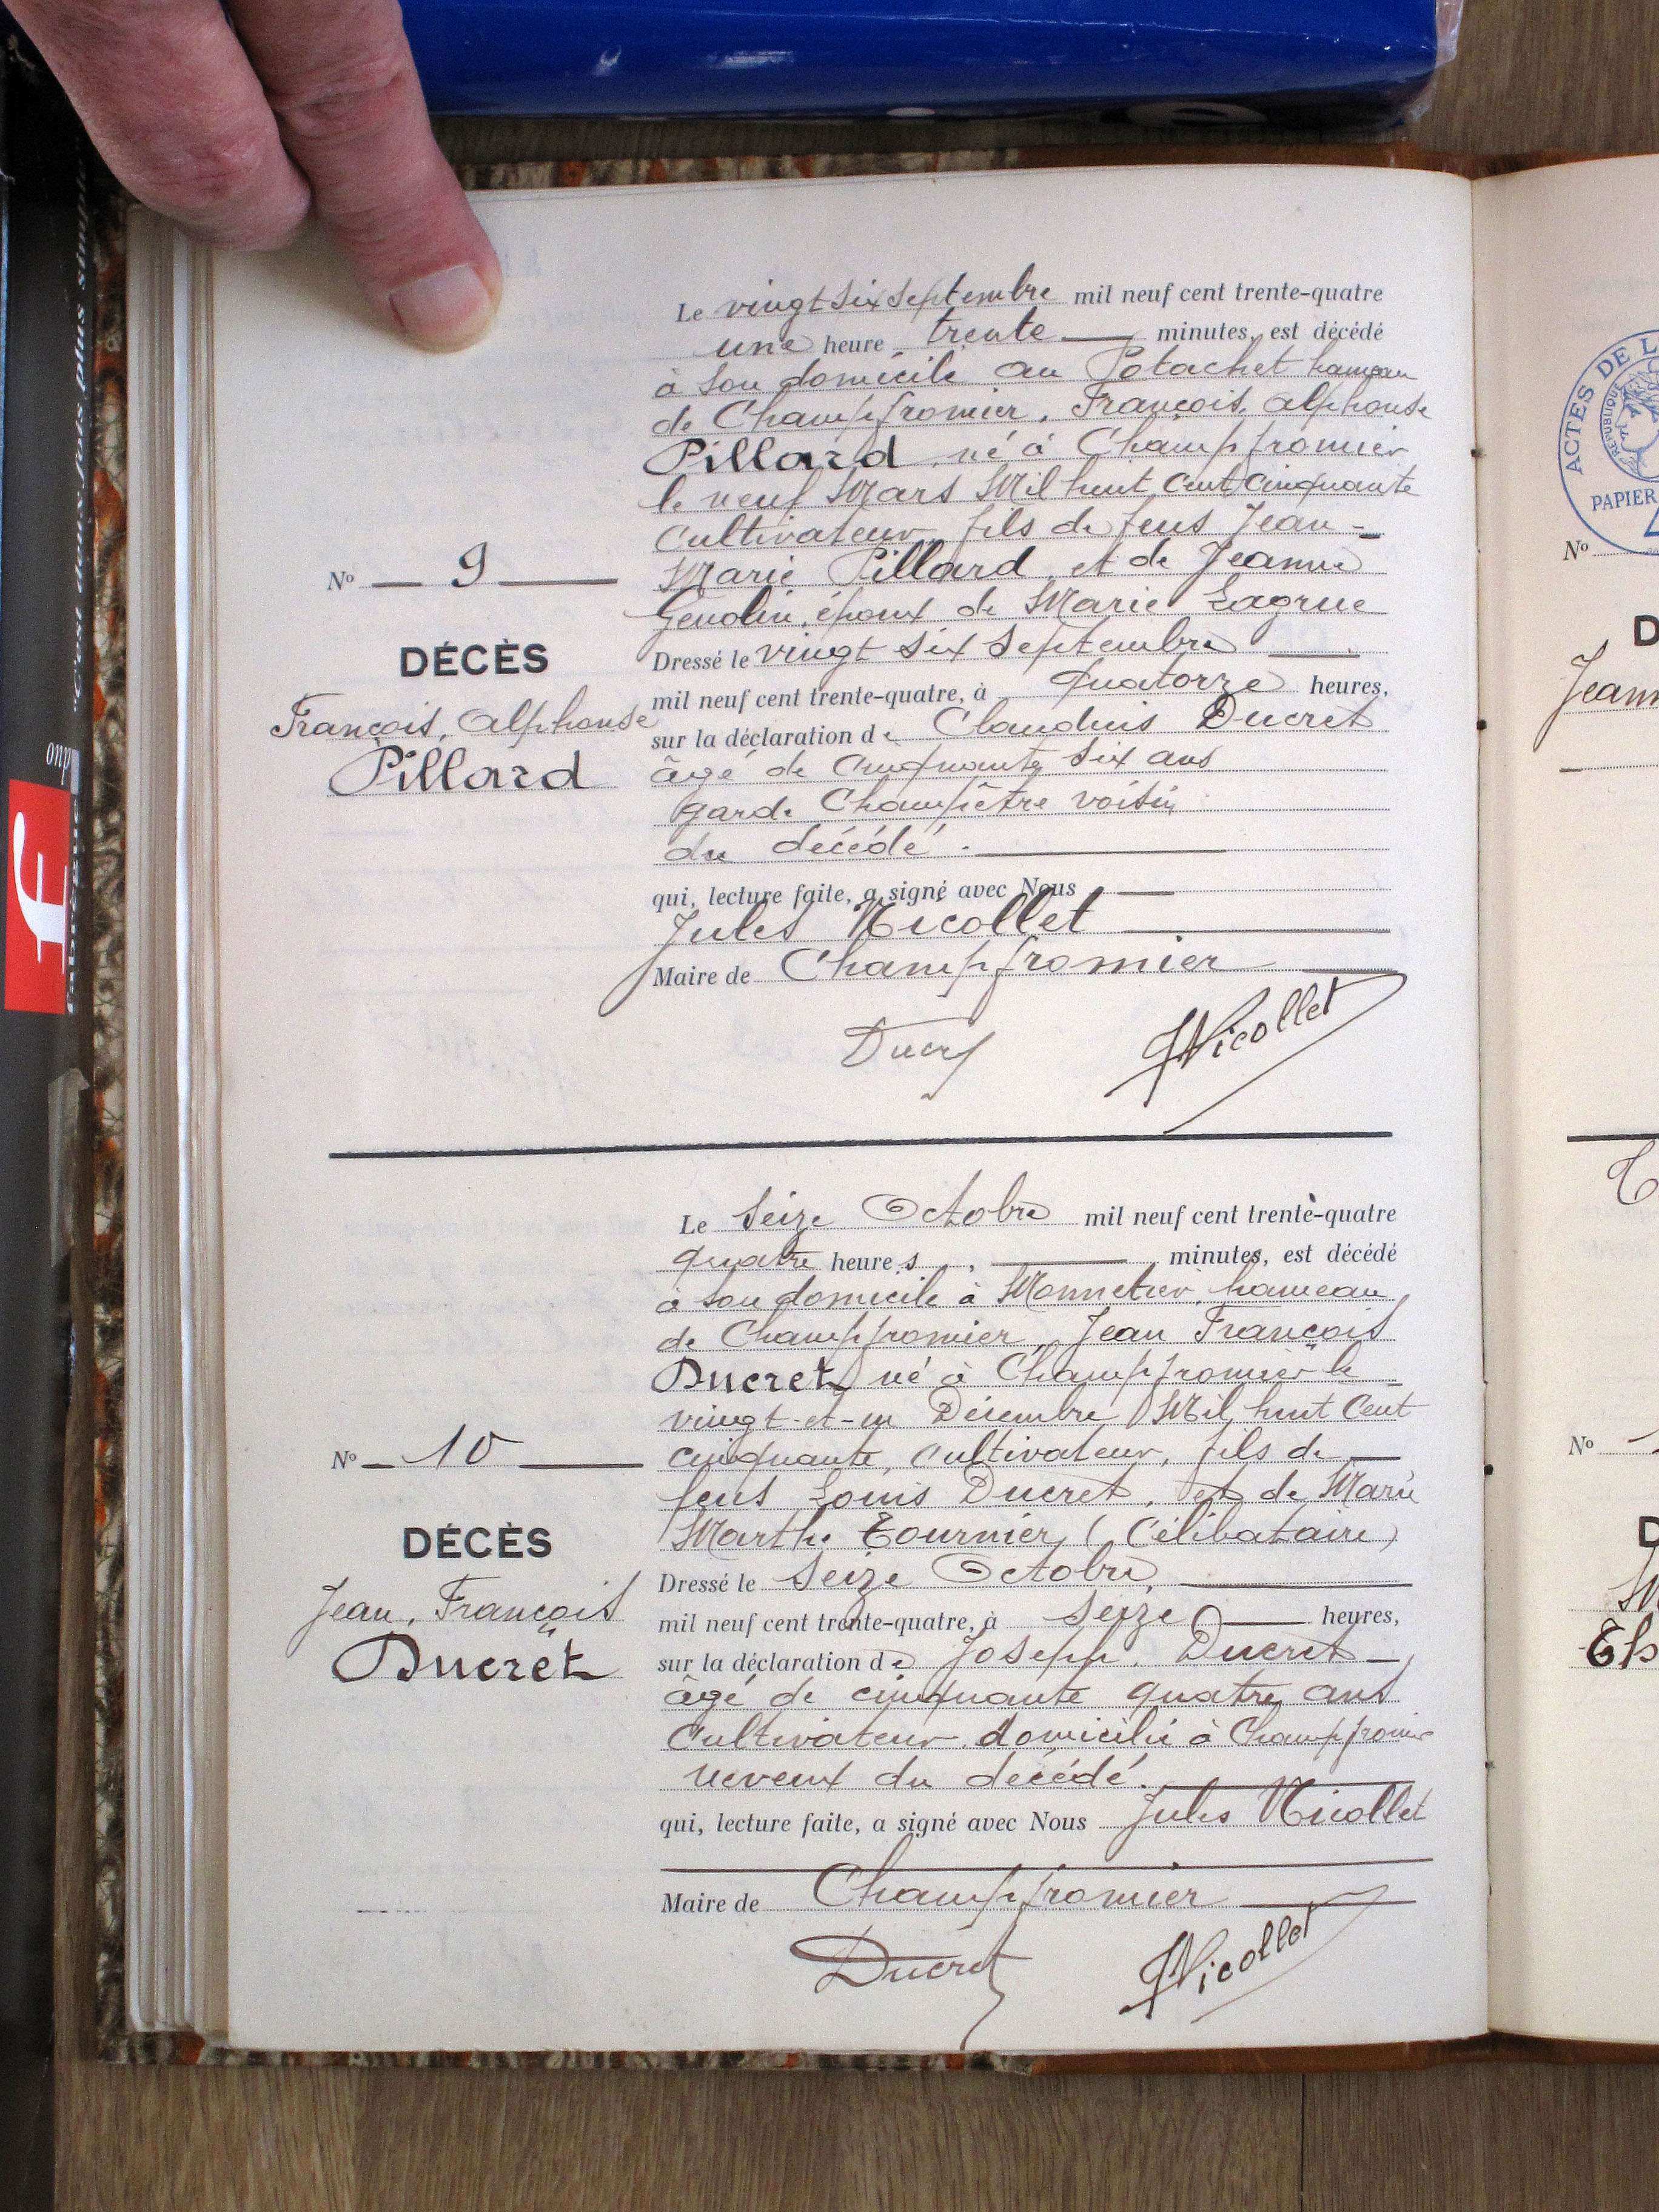 Le vingt six septembre mil neuf cent trente-quatre
une heure trente minutes, est décédé
à son domicile au Potachet hameau
de Champfromier, François, alphonse
Pillard né à Champfromier
le neuf Mars Mil huit Cent Cinquante
Cultivateur, fils de feus Jean-
Marie Pillard, et de Jeanne
Genolin, époux de Marie Lagrue
Nº 9
DÉCÈS
François, alphonse
Pillard
Dressé le vingt six Septembre
mil neuf cent trente-quatre, à quatorze heures,
sur la déclaration de Claudius Ducret
âgé de Cinquante six ans
garde Champêtre voisin
du décédé.
qui, lecture faite, a signé avec Nous
Jules Nicollet
Maire de Champfromier
Ducret
JNicollet
Le Seize Octobre mil neuf cent trente-quatre
quatre heures, minutes, est décédé
à son domicile à Monnetier, hameau
de Champfromier, Jean François
Ducret, né à Champfromier le
vingt-et-un Décembre Mil huit Cent
cinquante, cultivateur, fils de
feus Louis Ducret, et de Marie
Marthe Tournier (Célibataire)
Nº 10
DÉCÈS
Jean, François
Ducret
Dressé le Seize Octobre,
mil neuf cent trente-quatre, à Seize heures,
sur la déclaration de Joseph, Ducret
âgé de cinquante quatre ans
Cultivateur, domicilié à Champfromier
neveux du décédé.
qui, lecture faite, a signé avec Nous Jules Nicollet
Maire de Champfromier
Ducret
JNicollet
ACTES DE L
RÉPUBLIQUE
PAPIER
Nº
Jeann
Nº
onp
f